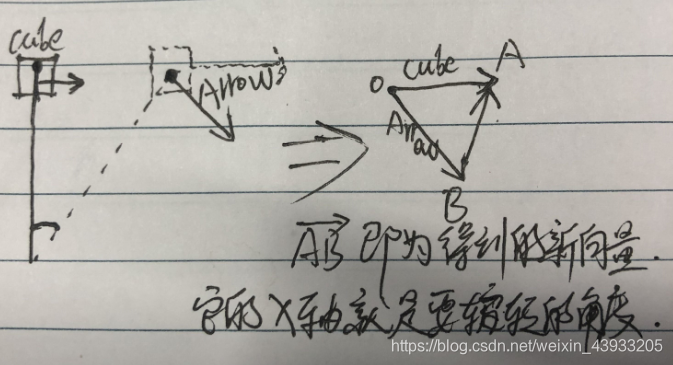 cube
Arrows
O cube A
Arrow
B
AB 即为得到的新向量.
它的X轴就是要旋转的角度.
https://blog.csdn.net/weixin_43933205